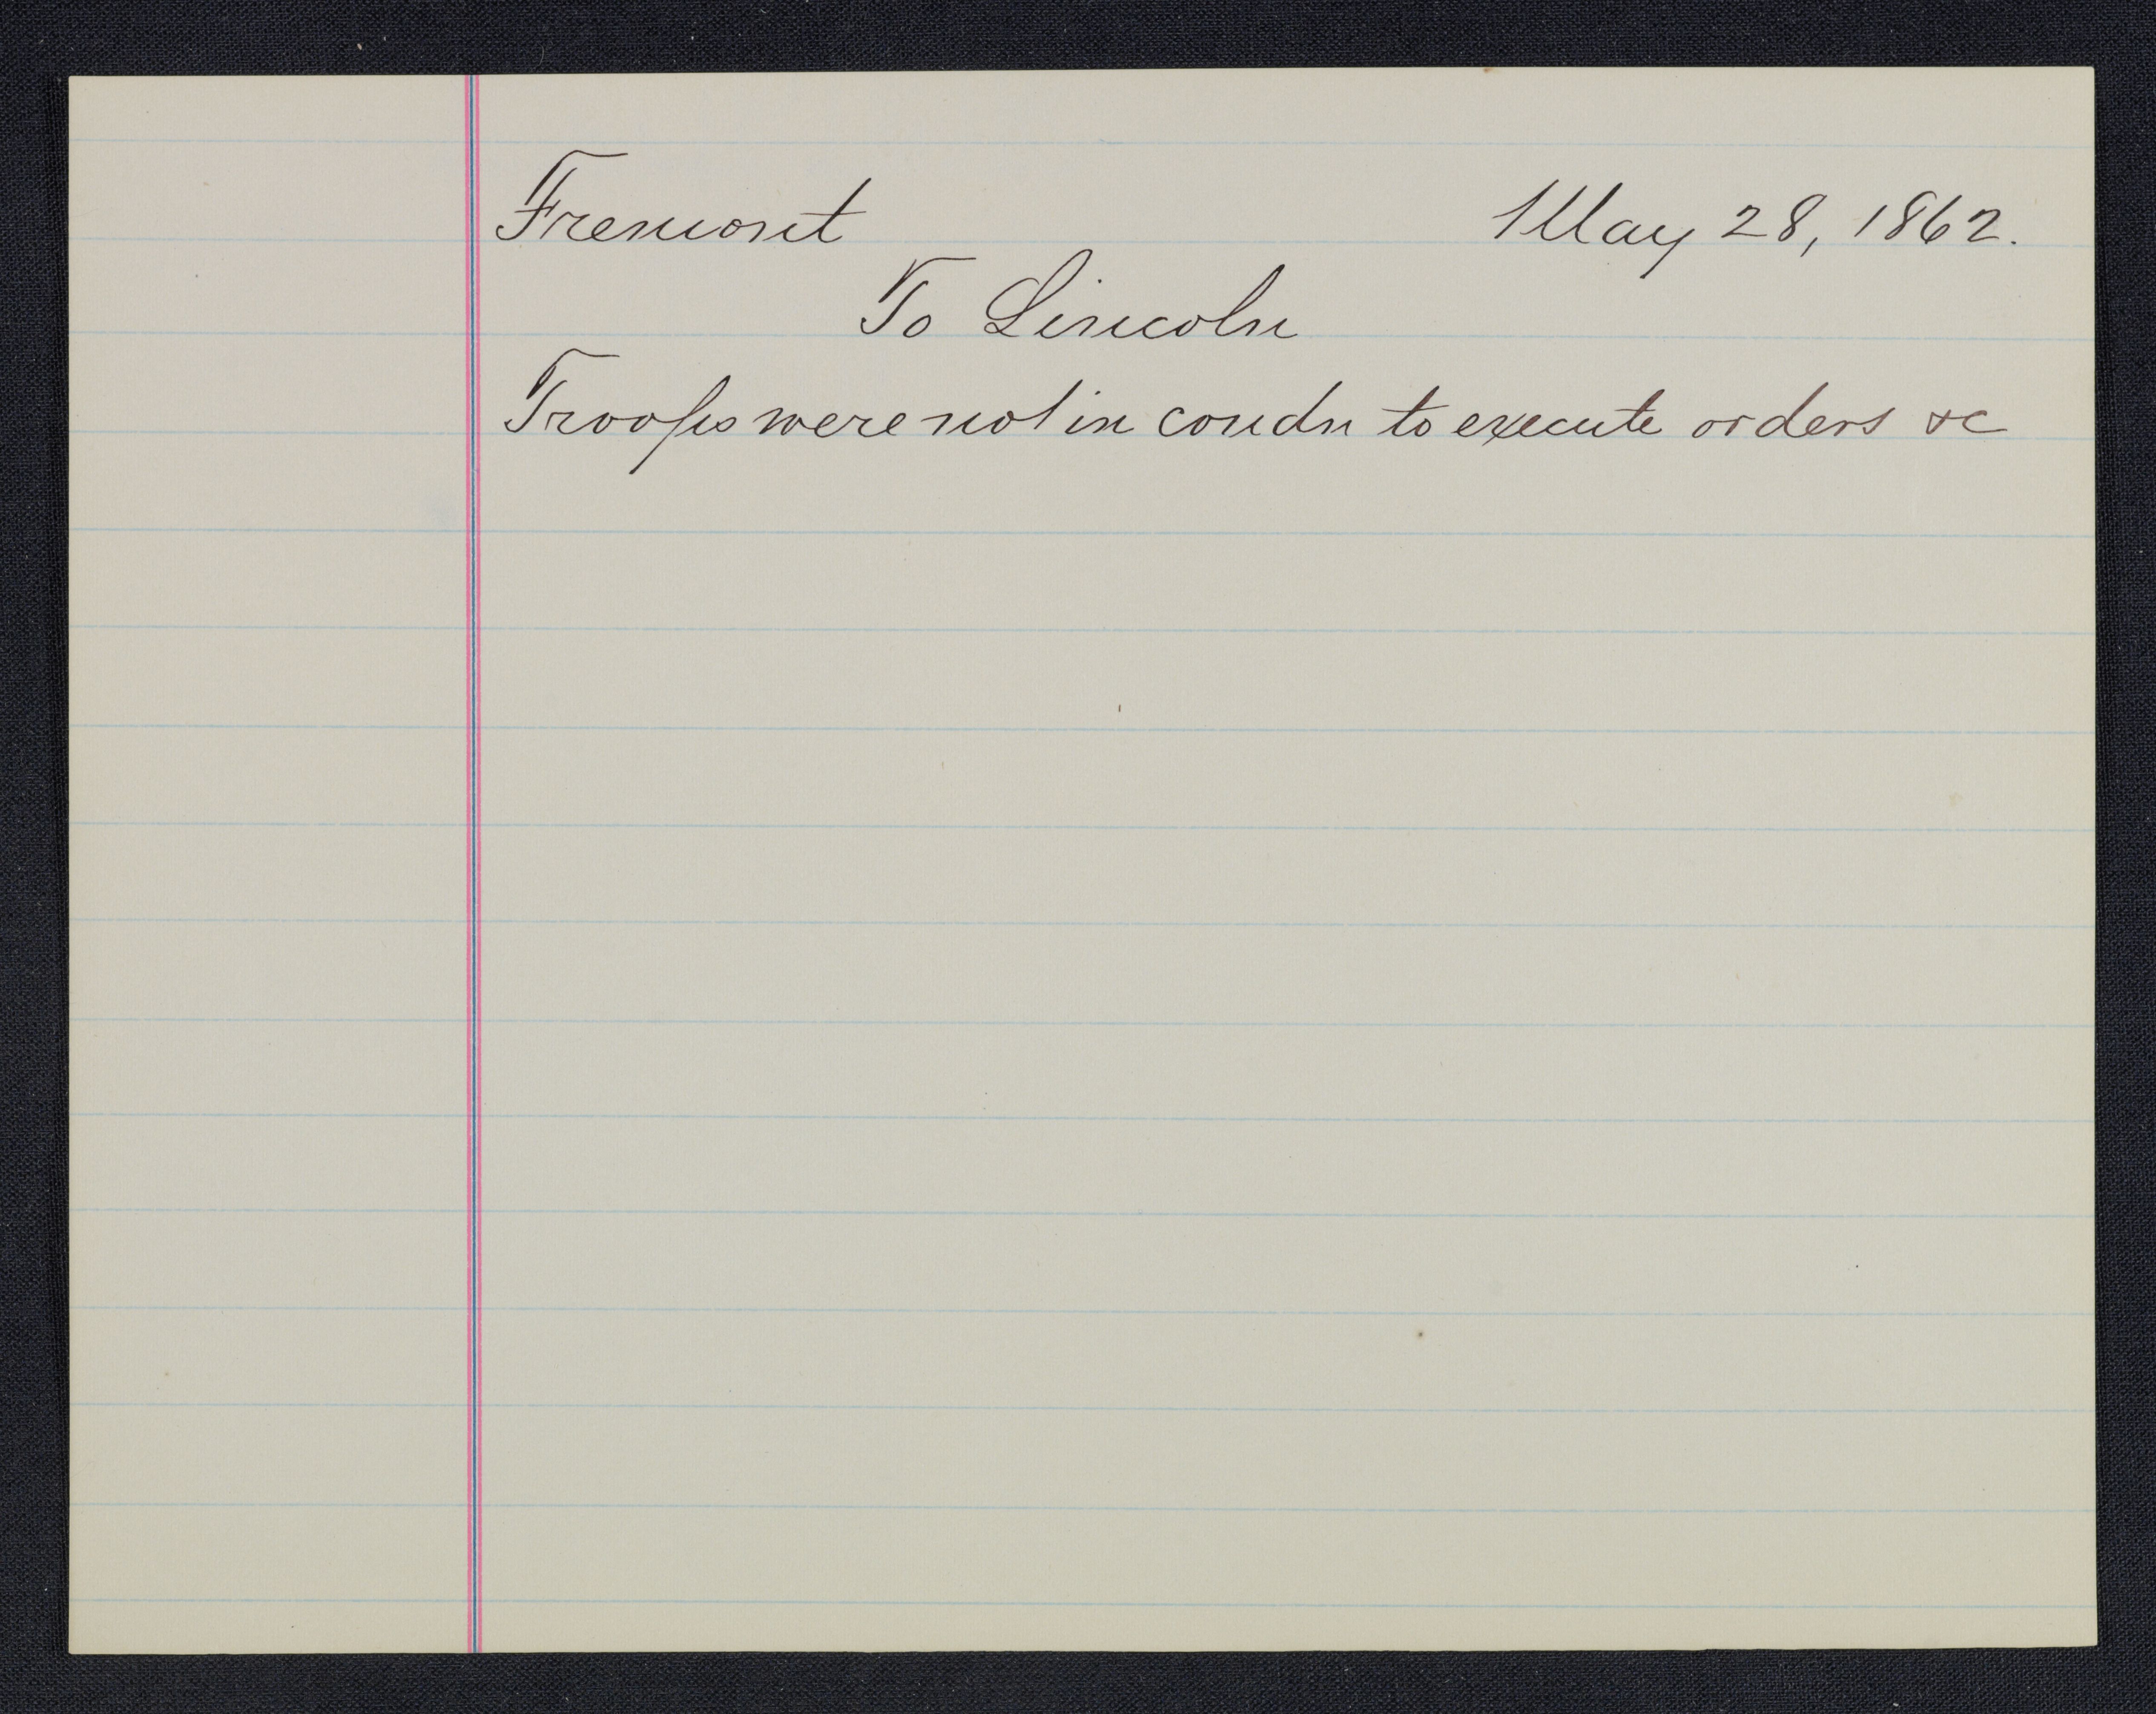 Fremont May 28, 1862.
To Lincoln
Troops were not in condn to execute orders &c